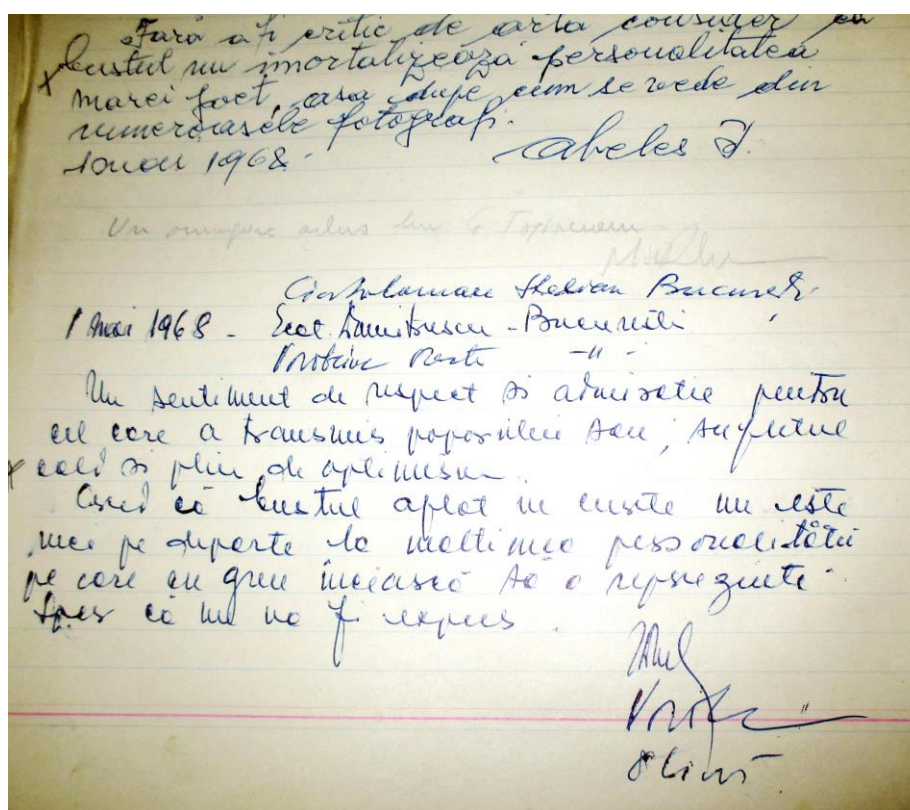 Fara a fi critic de arta consider ca
bustul nu imortalizează personalitatea
marei poet, asa dupe cum se vede din
numeroasele fotografi.
1 mai 1968.
Abeles I.
Un omagiu adus lui G Topîrceanu
Stelian București
1 Mai 1968 - Ecat. Dumitrescu - București
-"-
Un sentiment de respect si admiratie pentru
cel care a transmis poporului sau, sufletul
cald si plin de optimism.
Cred că bustul aflat in curte nu este
nici pe departe la inaltimea personalității
pe care cu greu încearcă să o reprezinte.
Sper că nu va fi expus.